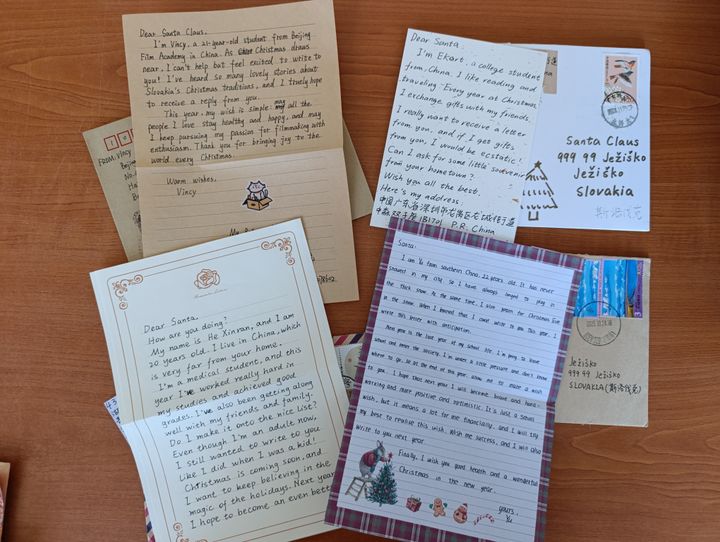 Dear Santa Claus.
I'm Vincy, a 21-year-old student from Beijing
Film Academy in China. As Christmas draws
near, I can't help but feel excited to write to
you! I've heard so many lovely stories about
Slovakia's Christmas traditions, and I truly hope
to receive a reply from you.
This year, my wish is simple: may all the
people I love stay healthy and happy, and may
I keep pursuing my passion for filmmaking with
enthusiasm. Thank you for bringing joy to the
world every Christmas.
Warm wishes,
Vincy
FROM: Vincy
Dear Santa:
I'm Ekart, a college student
from China. I like reading and
traveling. Every year at Christmas
I exchange gifts with my friends.
I really want to receive a letter
from you, and if I get gifts
from you, I would be ecstatic!
Can I ask for some little souvenir
from your hometown?
Wish you all the best.
Here's my address:
中国广东省深圳市龙岗区龙城街道
P.R. China
Santa Claus
999 99 Ježiško
Ježiško
Slovakia
斯洛伐克
Dear Santa,
How are you doing?
My name is He Xinran, and I am
20 years old. I live in China, which
is very far from your home.
I'm a medical student, and this
year I've worked really hard in
my studies and achieved good
grades. I've also been getting along
well with my friends and family.
Do I make it onto the nice list?
Even though I'm an adult now,
I still wanted to write to you
like I did when I was a kid!
Christmas is coming soon, and
I want to keep believing in the
magic of the holidays. Next year
I hope to become an even bett
Santa:
I am Yu from southern China, 22 years old. It has never
snowed in my city. So I have always longed to play in
the thick snow. At the same time, I also yearn for Christmas Eve
in the snow. When I learned that I could write to you this year, I
wrote this letter with anticipation.
Next year is the last year of my school life. I'm going to leave
school and enter the society. I'm under a little pressure and don't know
where to go. So at the end of this year, allow me to make a wish
to you. I hope that next year I will become brave and hard-
working and more positive and optimistic. It's just a small
wish, but it means a lot to me financially, and I will try
my best to realise this wish. Wish me success, and I will also
write to you next year.
Finally, I wish you good health and a wonderful
Christmas in the new year.
yours,
Yu
Ježiško
999 99 Ježiško
SLOVAKIA (斯洛伐克)